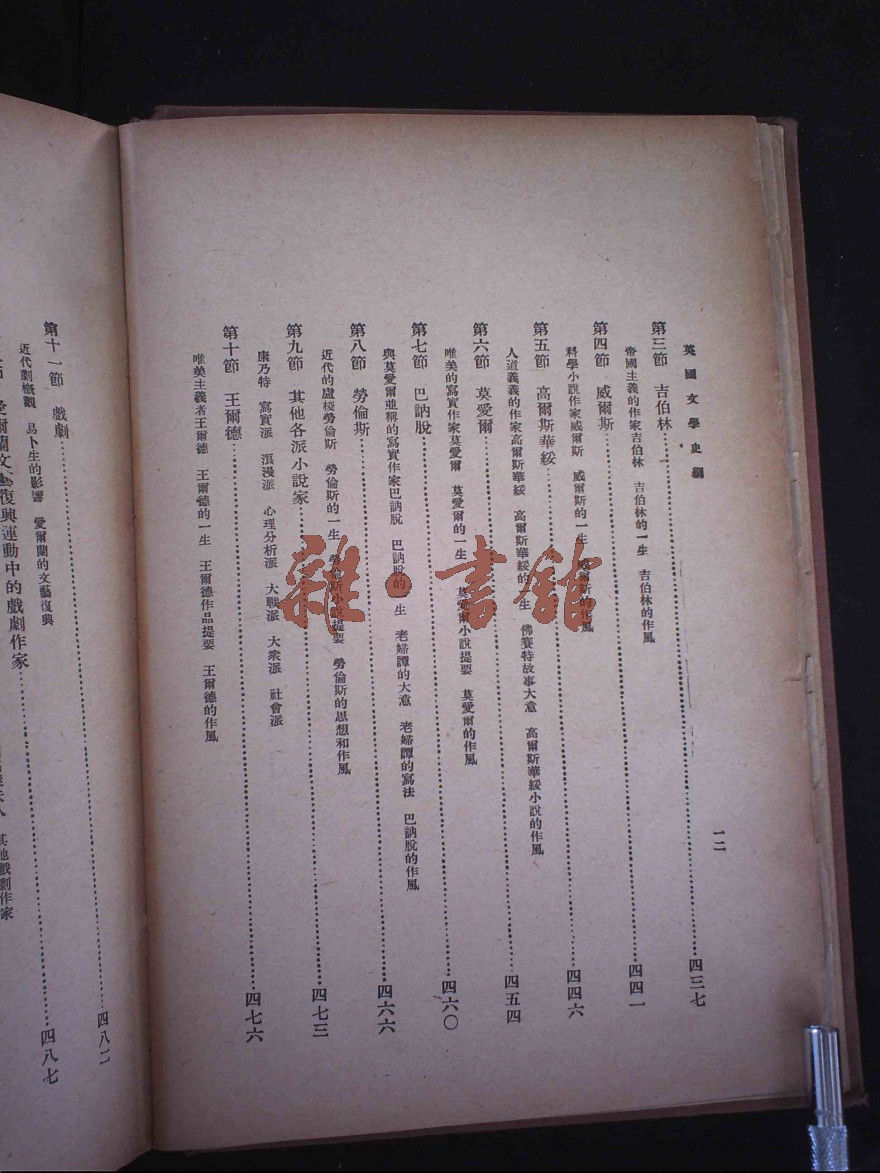 英國文學史綱 一二
第三節 吉伯林……四三七
帝國主義的作家吉伯林 吉伯林的一生 吉伯林的作風
第四節 威爾斯……四四一
科學小說作家威爾斯 威爾斯的一生 威爾斯的作風
第五節 高爾斯華綏……四四六
人道義義的作家高爾斯華綏 高爾斯華綏的一生 佛賽特故事大意 高爾斯華綏小說的作風
第六節 莫愛爾……四五四
唯美的寫實作家莫愛爾 莫愛爾的一生 莫愛爾小說提要 莫愛爾的作風
第七節 巴訥脫……四六〇
與莫愛爾並稱的寫實作家巴訥脫 巴訥脫的一生 老婦譚的大意 老婦譚的寫法 巴訥脫的作風
第八節 勞倫斯……四六六
近代的盧梭勞倫斯 勞倫斯的一生 勞倫斯小說提要 勞倫斯的思想和作風
第九節 其他各派小說家……四七三
康乃特 寫實派 浪漫派 心理分析派 大戰派 大衆派 社會派
第十節 王爾德……四七六
唯美主義者王爾德 王爾德的一生 王爾德作品提要 王爾德的作風
第十一節 戲劇……四八二
近代劇概觀 易卜生的影響 愛爾蘭的文藝復興
節 愛爾蘭文藝復興運動中的戲劇作家……四八七
其他戲劇作家
雜·書館